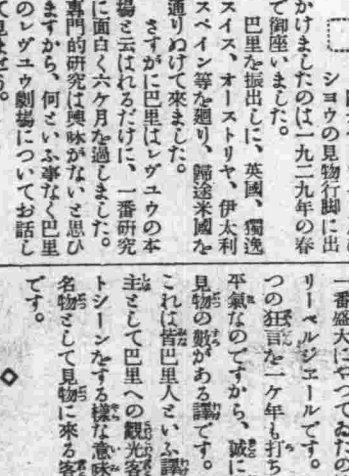 ショウの見物行脚に出
かけましたのは一九二九年の春
で御座いました。
巴里を振出しに、英國、獨逸
スイス、オーストリヤ、伊太利
スペイン等を廻り、歸途米國を
通りぬけて來ました。
さすがに巴里はレヴユウの本
場と云はれるだけに、一番研究
に面白く六ケ月を過しました。
專門的研究は興味がないと思ひ
ますから、何といふ事なく巴里
のレヴユウ劇場についてお話し
て見ませう。
一番盛大にやつてゐたの
リーベルジエールです。
つの狂言を一ケ年も打ち
平氣なのですから、誠に
見物の數がある譯です。
これは皆巴里人といふ譯
主として巴里への觀光客
トシーンをする樣な意味
名物として見物に來る客
です。
◇